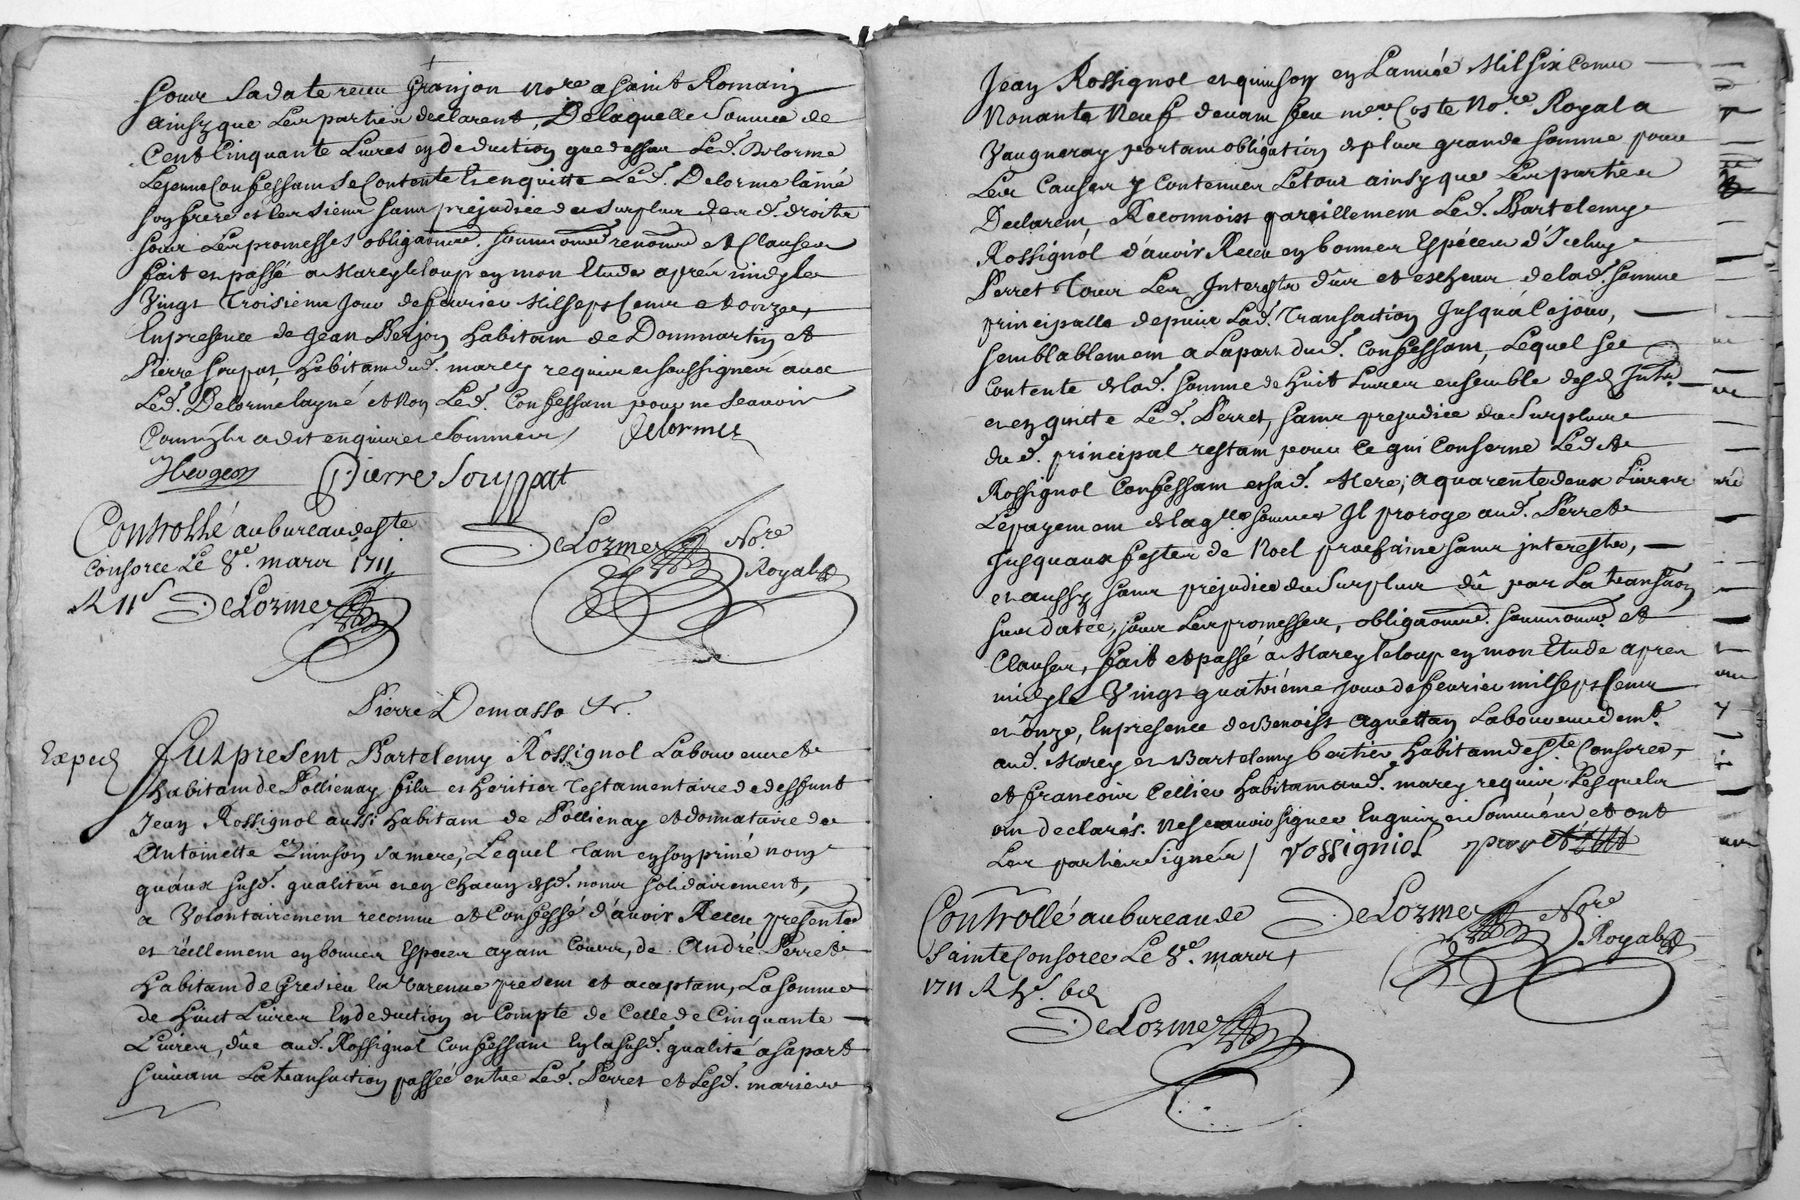 Soux sa date receu Granjon No.re a saint Romain
ainsy que les parties declarent, De laquelle somme de
Cent Cinquante Livres en deduction que dessus Led. Delorme
Lejeune Confessant Se Contente Et en quitte Led. Delorme laîné
son frere et les siens sans prejudice du surplus de ses d. droits
soux Les promesses obliga.ons sommissions renon.ons et Clauses
fait et passé a Marcy le loup en mon Etude aprés midy le
Vingt Troisieme Jour de fevrier Mil sept Cents et onze,
En presence de Jean Berjon habitant de Dommartin et
Pierre Soupat, habitant dud. marcy requis et soussignés avec
Led. Delorme layné et Non Led. Confessant pour ne scavoir
Comm'il a dit enquis et sommé / Delorme
Pierre Souppat
Controllé au bureau de S.te
Consorce Le 8.e mars 1711
R 11 s DeLorme
DeLorme No.re
Royal
Pierre Demasso &c.
Exped
Fut present Bartelemy Rossignol Laboureur
habitant de Pollienay fils et heritier Testamentaire de deffunt
Jean Rossignol aussi habitant de Pollienay et donnataire de
Antoinette Quinson sa mere, Lequel Tant en son privé nom
qu'aux susd. qualités et en Chacun desd. noms solidairement,
a Volontairement reconnu et Confessé d'avoir Receu presentem.t
et réellement en bonnes Especes ayant Cours, de André Perret
habitant de Gresieu la Varenne present et aceptant, La somme
de Huict Livres En deduction et Compte de Celle de Cinquante
Livres, düe aud. Rossignol Confessant En la susd. qualité a sa part
suivant La transaction passée entre Led. Perret et Lesd. mariés
Jean Rossignol et quinson en L'année Mil six Cents
Nonante Neuf devant feu me. Coste No.re Royal a
Vaugneray portant obligation de plus grande somme pour
Les Causes y Contenues Le tout ainsy que Les parties
Declarent, Reconnoist pareillement Led. Bartelemy
Rossignol d'avoir Receu en bonnes Espéces d'Iceluy
Perret Tous Les Interests dûs et escheus de lad. somme
principalle depuis Lad. Transaction Jusqu'a Ce jour,
semblablement a La part dud. Confessant, Lequel se
Contente de lad. somme de huit Livres ensemble desd. Int.
et en quitte Led. Perret, sans prejudice du surplus
du d. principal restant pour Ce qui Conserne Led.
Rossignol Confessant et sad. Mere, a quarente deux Livres
Le payement de laq.lle somme Il proroge aud. Perret
Jusqu'aux festes de Noel prochaine sans interests,
et aussy sans prejudice du surplus dû par La transa.on
sus datée, soux Les promesses, obliga.ons sommissions et
Clauses, fait et passé a Marcy le loup en mon Etude apres
midy le Vingt quatriéme jour de fevrier mil sept Cents
et onze, En presence de Benoist Aguettan Laboureur dem.t
aud. Marcy et Bartelemy bertier habitant de S.te Consorce,
et francois Cellier habitant aud. marcy requis, Lesquels
ont declarés ne scavoir signer Enquis et sommés et ont
Les parties signés / rossigniol
Controllé au bureau de
Sainte Consorce Le 8.e mars
1711 R
DeLorme
DeLorme No.re
Royal